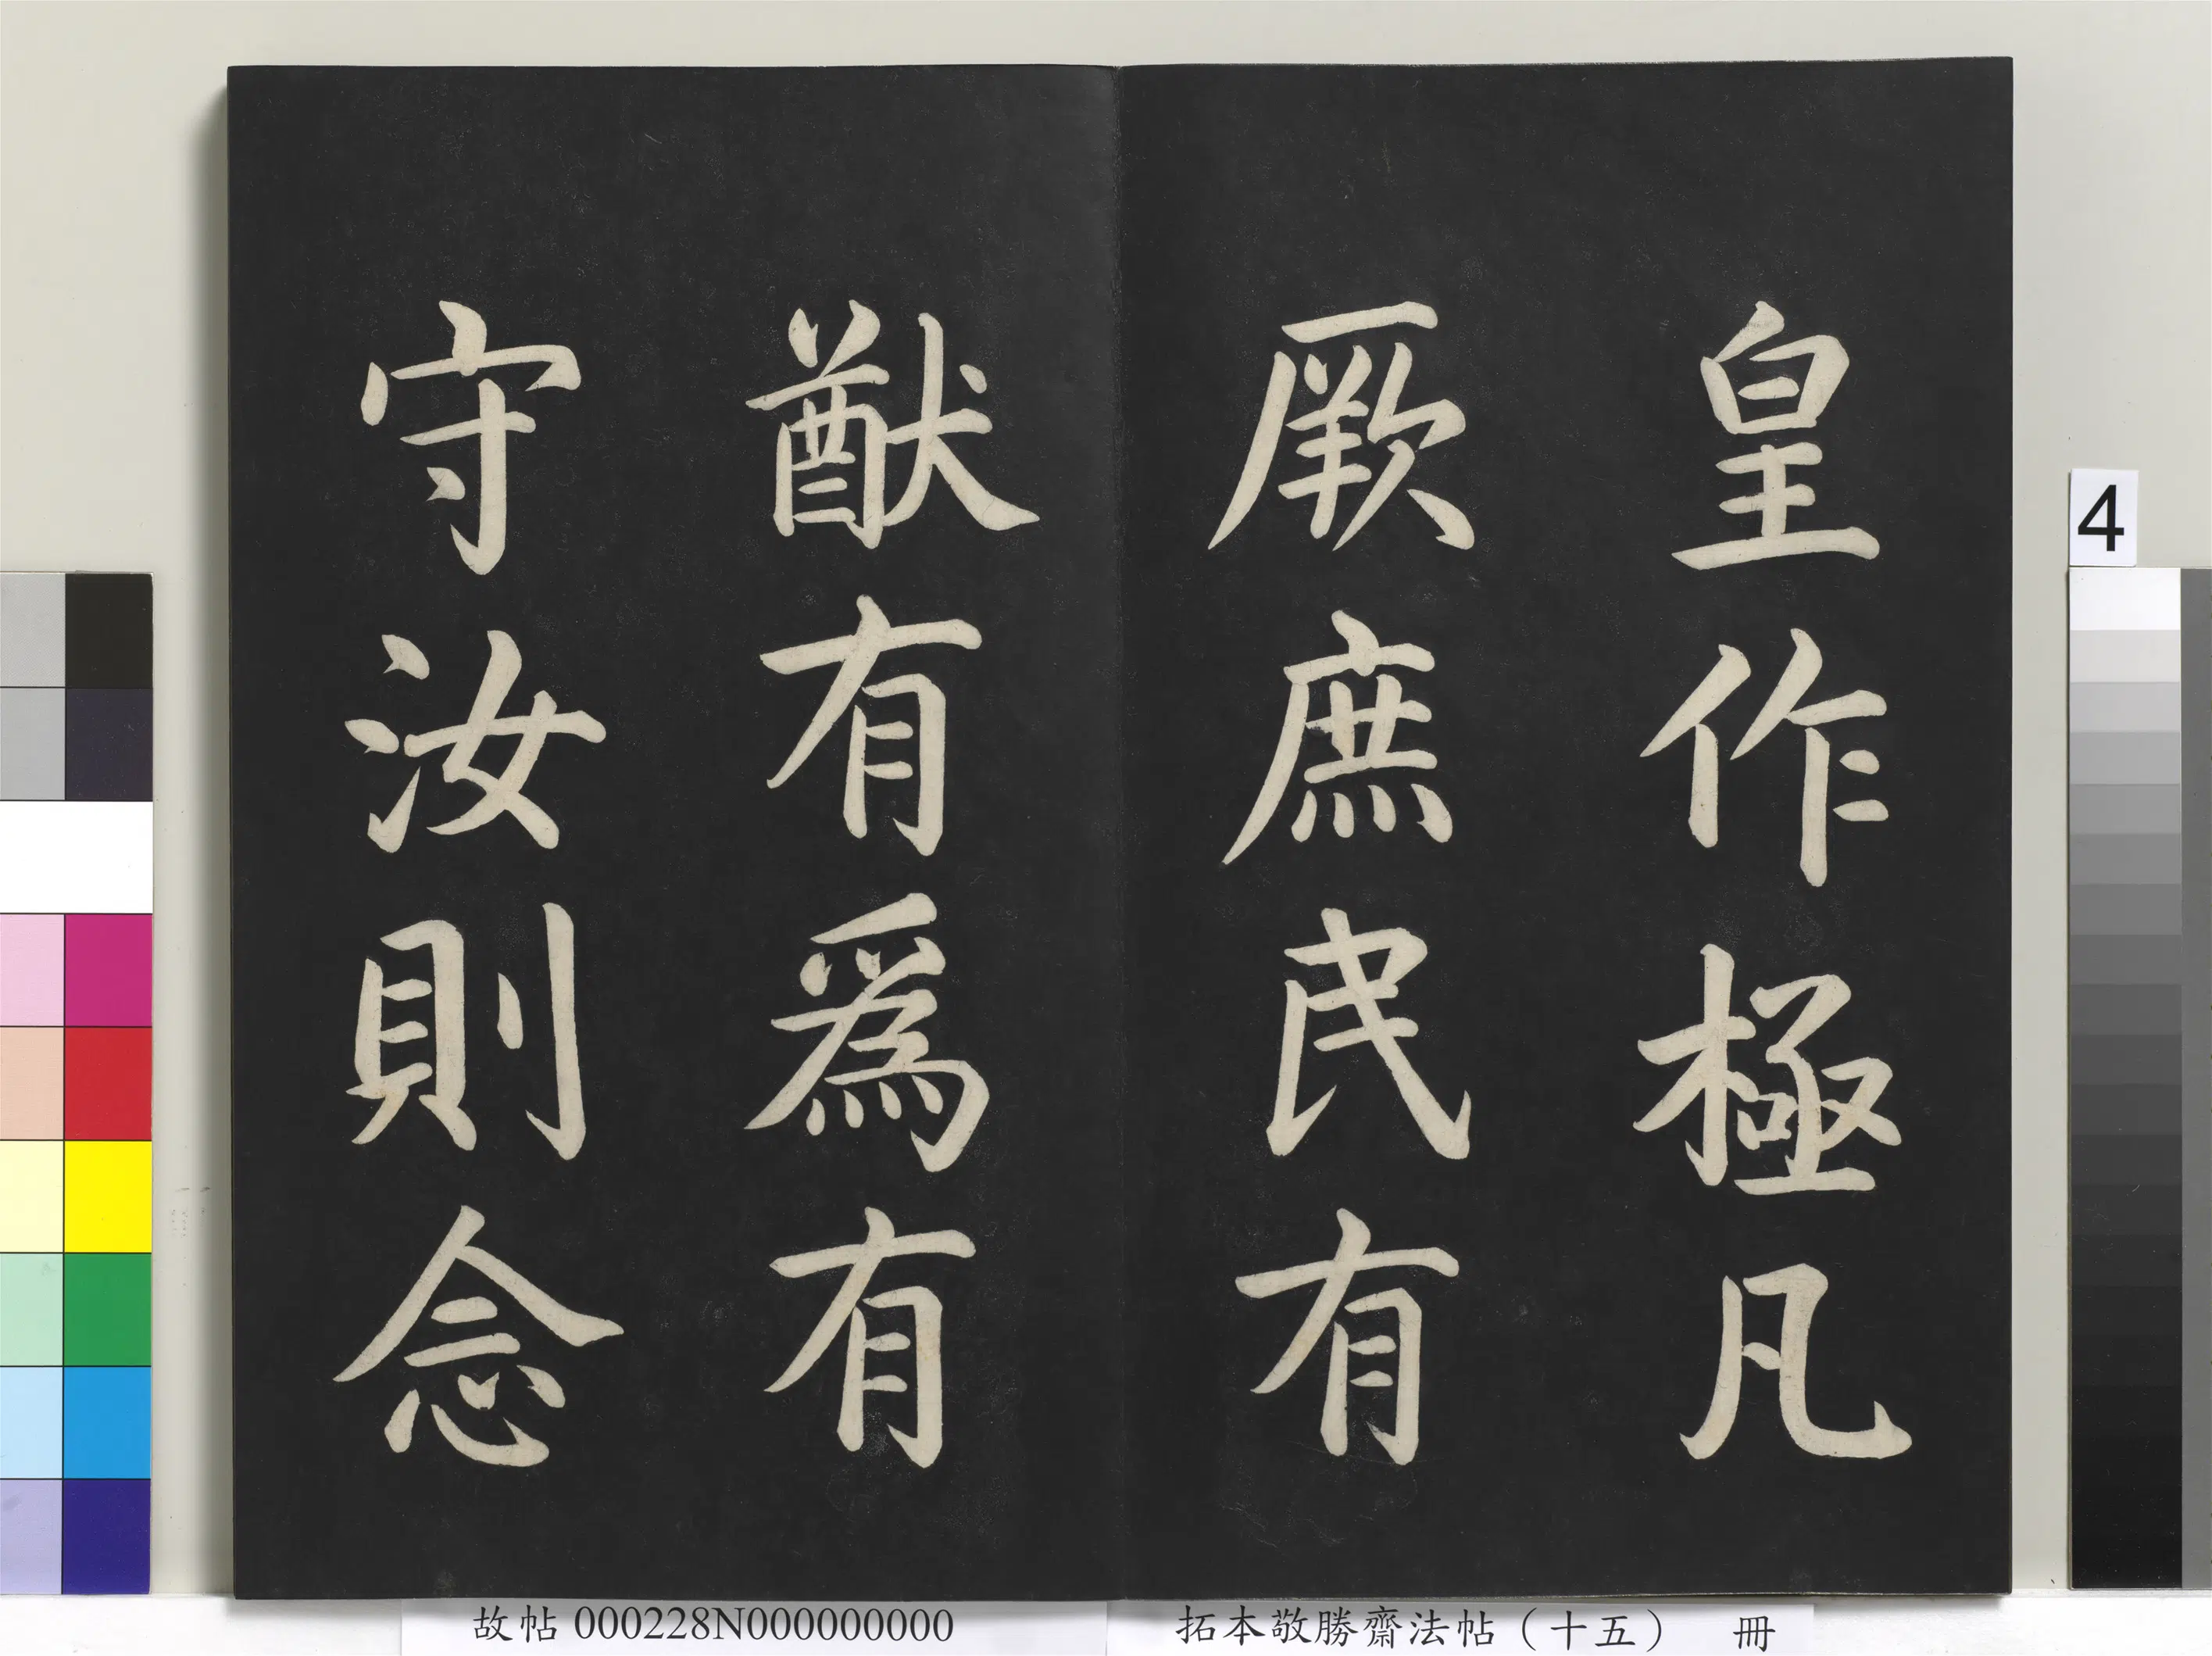 皇作極凡
厥庶民有
猷有爲有
守汝則念
4
故帖 000228N000000000
拓本敬勝齋法帖（十五） 冊